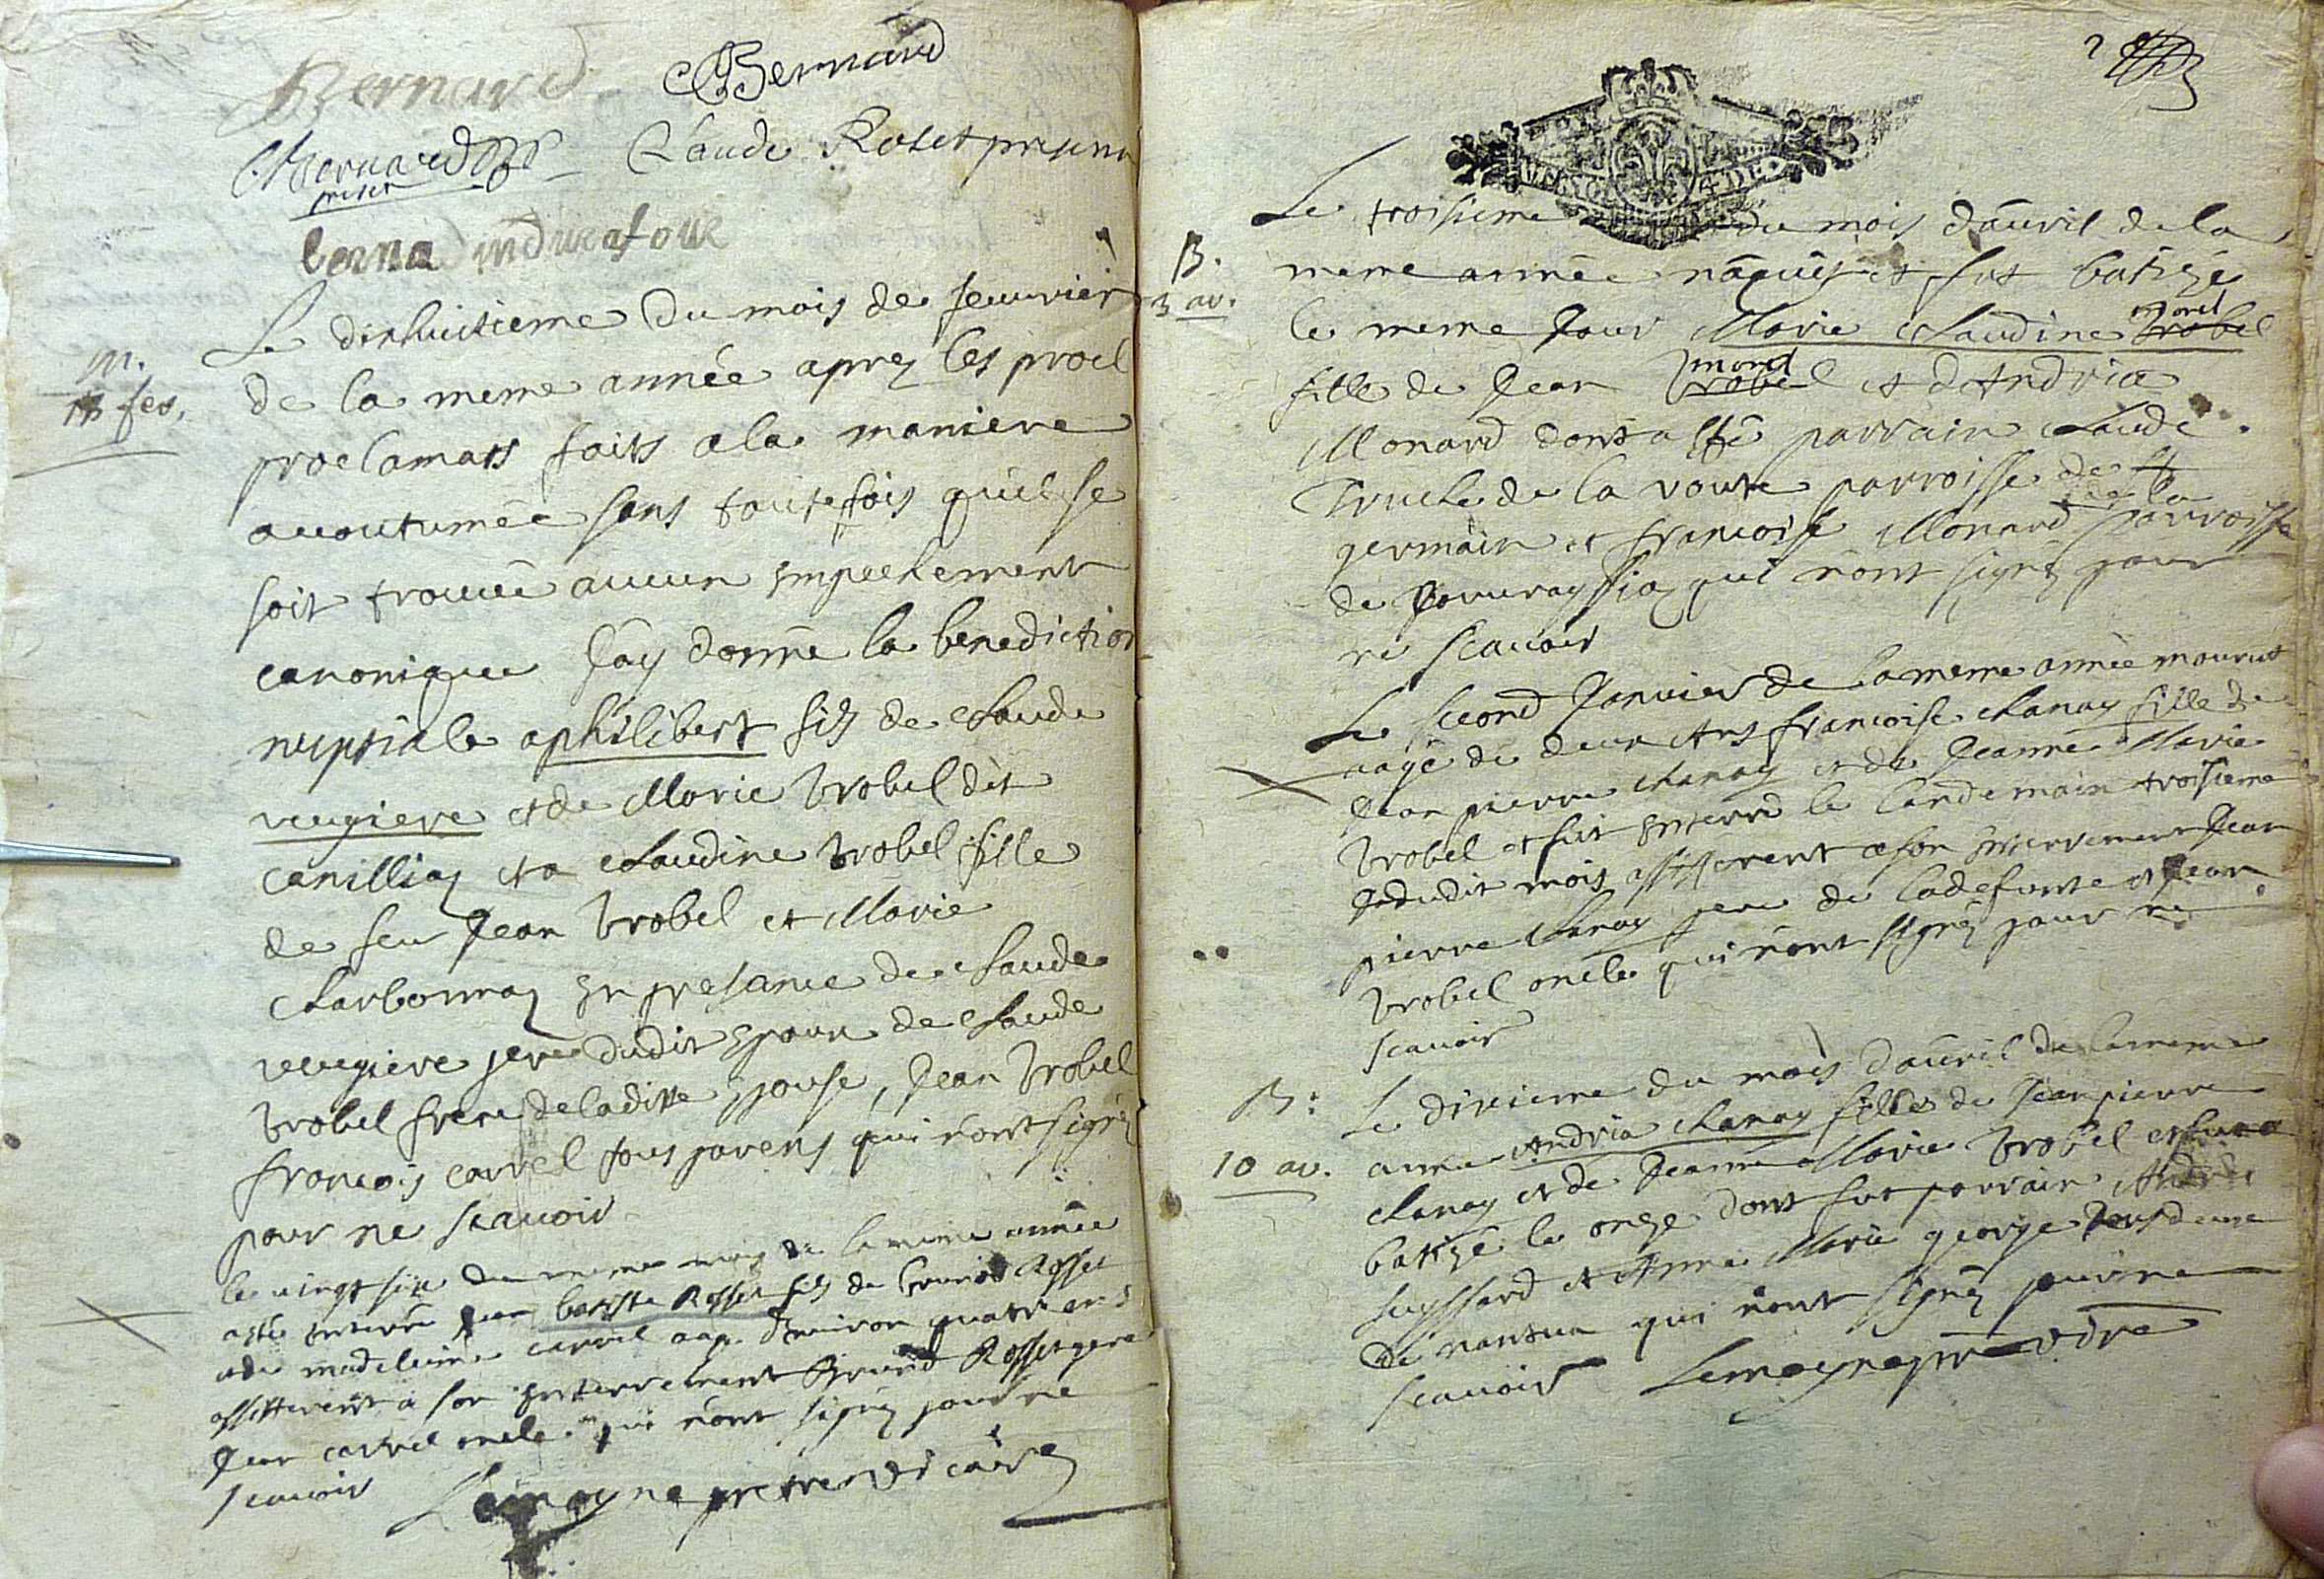 Bernard Bernard
Bernard Claude Rolet present
pretre
Le dixhuitieme du mois de feuurier
m.
18 feu.
de la meme année aprez les procl
proclamats faits a la maniere
acoutumée sans toutefois quil se
soit trouué aucun Empechement
canonique Jay donné la benediction
nuptiale a philibert fils de Claude
reugiere et de Marie Brobel dit
canilliaz et a Claudine Brobel fille
de feu Jean Brobel et Marie
Charbonnaz En presance de Claude
reugiere pere dudit Epoux de Claude
Brobel frere de laditte Epouse, Jean Brobel
francois carrel tous parens qui n'ont signéz
pour ne scauoir
le uingt six du meme mois de la meme année
a esté Enterré Jean batiste Rosset fils de Rosset
et de madeleine carrel aagé d'Enuiron quatre ans
assisterent a son Enterrement Rosset pere
Jean carrel oncle qui n'ont signéz pour ne
scauoir Lemoyne pretre vicaire
2
Le troisieme du mois d'auril de la
B.
3 av.
meme année naquit et fut batizée
le meme Jour Marie Claudine Brobel
mond
fille de Jean Brobel et d'Andria
mond
Monard dont a esté parrain Claude
Truche de la voute parroisse de St
germain et francoise Monard de la parroisse
de qui n'ont signéz pour
ne scauoir
Le second Januier de la meme année mourut
aagé de deux Ans francoise Chanay fille de
Jean pierre Chanay et de Jeanne Marie
Brobel et fut Enterré le landemain troisieme
dudit mois assisterent a son Enterrement Jean
pierre Chanay pere de la defunte et Jean
Brobel oncle qui n'ont signéz pour ne
scauoir
B:
10 av.
Le dixieme du mois d'auril de la meme
année Andria Chanay fille de Jean pierre
Chanay et de Jeanne Marie Brobel et fut
batizé le onze dont fut parrain André
suyssard et Anne Marie george tous deux
de nantua qui n'ont signéz pour ne
scauoir Lemoyne